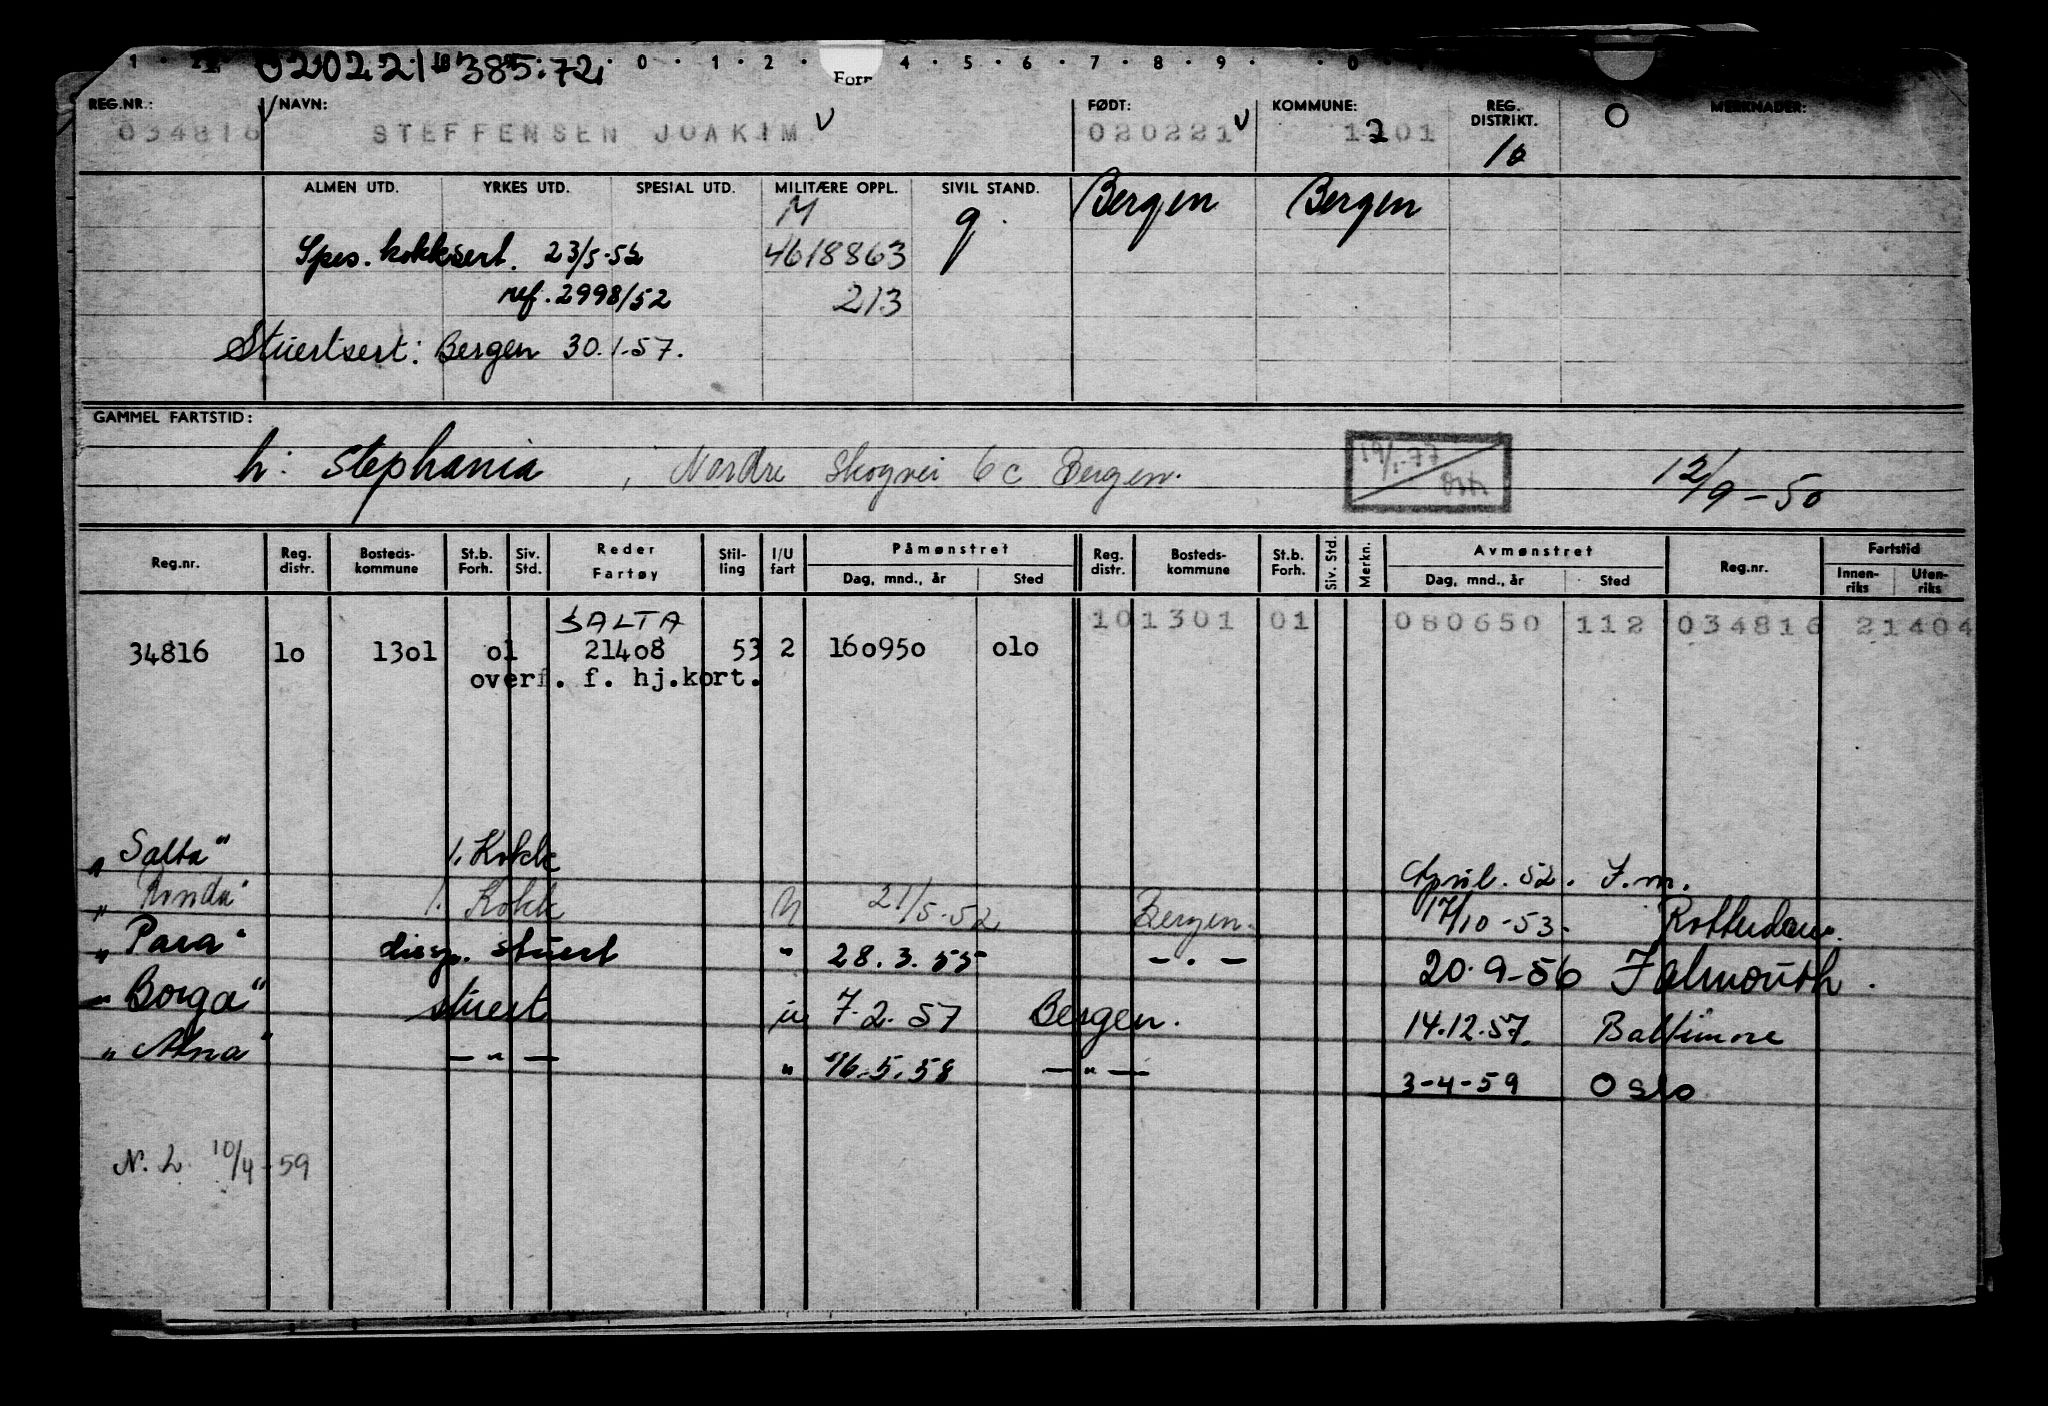 020221 385.72
0 · 1 · 2 · 4 · 5 · 6 · 7 · 8 · 9 · 0
REG.NR.: NAVN: FØDT: KOMMUNE: REG. DISTRIKT. O MERKNADER:
034816 STEFFENSEN JOAKIM 020221 1201 10
ALMEN UTD. YRKES UTD. SPESIAL UTD. MILITÆRE OPPL. SIVIL STAND. Bergen Bergen
M g.
Spes. kokksert. 23/5-52 4618863
ref. 2998/52 213
Stuertsert: Bergen 30.1.57.
GAMMEL FARTSTID:
h: Stephania, Nordre Skogvei 6c Bergen. 19/1-77 12/9-50
Reg.nr. Reg. distr. Bosteds-kommune St.b. Forh. Siv. Std. Reder Fartøy Stil-ling I/U fart Påmønstret Dag, mnd., år Sted Reg. distr. Bosteds-kommune St.b. Forh. Siv. Std. Merkn. Avmønstret Dag, mnd., år Sted Reg.nr. Fartstid Innen-riks Uten-riks
SALTA 10 1301 01 080650 112 034816 21404
34816 1o 13o1 o1 214o8 53 2 16o95o o1o
overf. f. hj.kort.
"Salta" 1. Kokk April. 52. F.m.
"Ronda" 1. Kokk U 21/5-52 Bergen. 17/10-53. Rotterdam.
"Para" disp. stuert " 28.3.55 -.- 20.9-56 Falmouth.
"Borga" stuert u 7.2.57 Bergen. 14.12.57. Baltimore
"Atna" -"- " 16.5.58 -"- 3-4-59 Oslo
N.L. 10/4-59